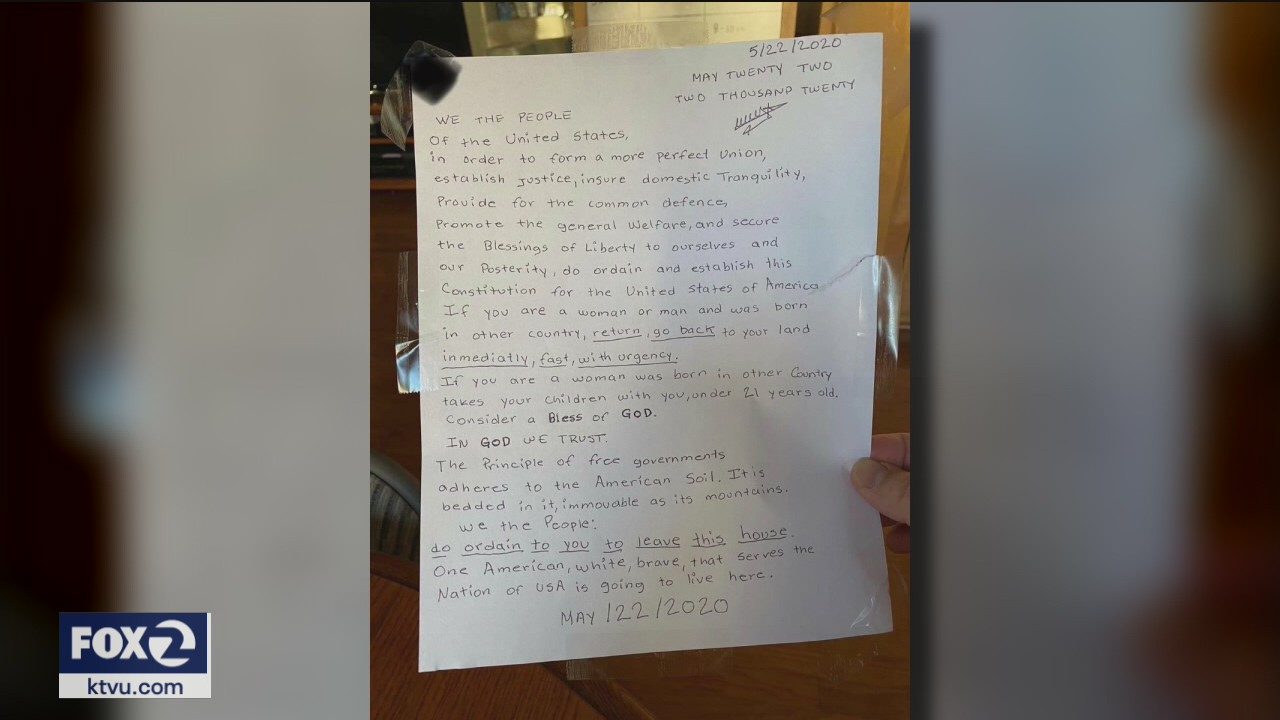 5/22/2020
MAY TWENTY TWO
TWO THOUSAND TWENTY
WE THE PEOPLE
Of the United States,
in order to form a more perfect Union,
establish Justice, insure domestic Tranquility,
Provide for the common defence,
Promote the general Welfare, and secure
the Blessings of Liberty to ourselves and
our Posterity, do ordain and establish this
Constitution for the United States of America
If you are a woman or man and was born
in other country, return, go back to your land
inmediatly, fast, with urgency.
If you are a woman was born in other Country
takes your children with you, under 21 years old.
Consider a Bless of GOD.
IN GOD WE TRUST.
The Principle of free governments
adheres to the American Soil. It is
bedded in it, immovable as its mountains.
we the People:
do ordain to you to leave this house.
One American, white, brave, that serves the
Nation of USA is going to live here.
MAY /22/2020
FOX 2
ktvu.com